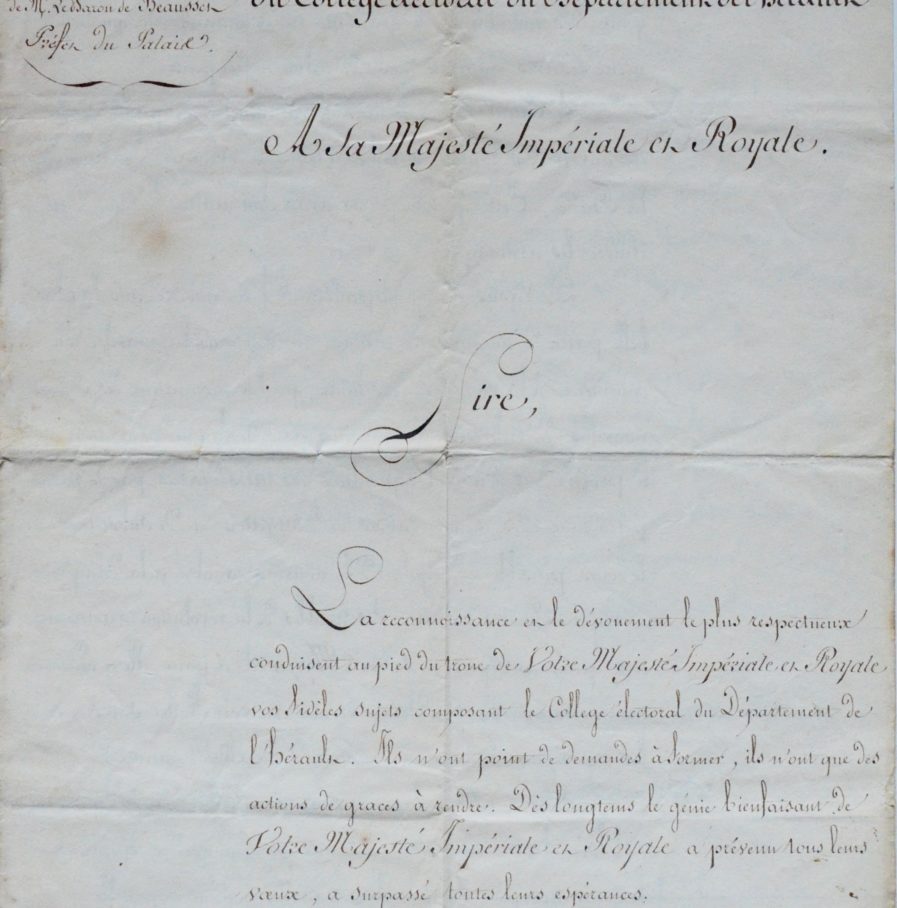 de M. Le Baron de Beausset
Préfet du Palais.
du Collège électoral du Département de l'Hérault
A Sa Majesté Impériale et Royale.
Sire,
La reconnoissance et le dévouement le plus respectueux
conduisent au pied du trone de Votre Majesté Impériale et Royale
vos fidèles sujets composant le College électoral du Département de
l'hérault. Ils n'ont point de demandes à former, ils n'ont que des
actions de graces à rendre. Dès longtems le génie bienfaisant de
Votre Majesté Impériale et Royale a prévenu tous leurs
vœux, a surpassé toutes leurs espérances.